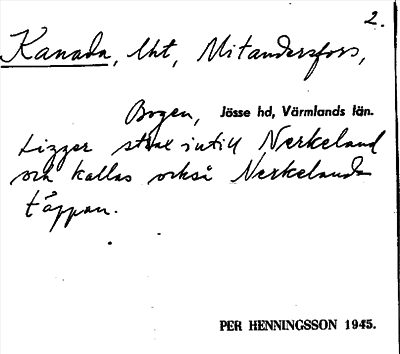 2.
Kanada, lht, Mitandersfors,
Bogen, Jösse hd, Värmlands län.
Ligger strax intill Nerkeland
och kallas också Nerkelands
täppan.
PER HENNINGSSON 1945.